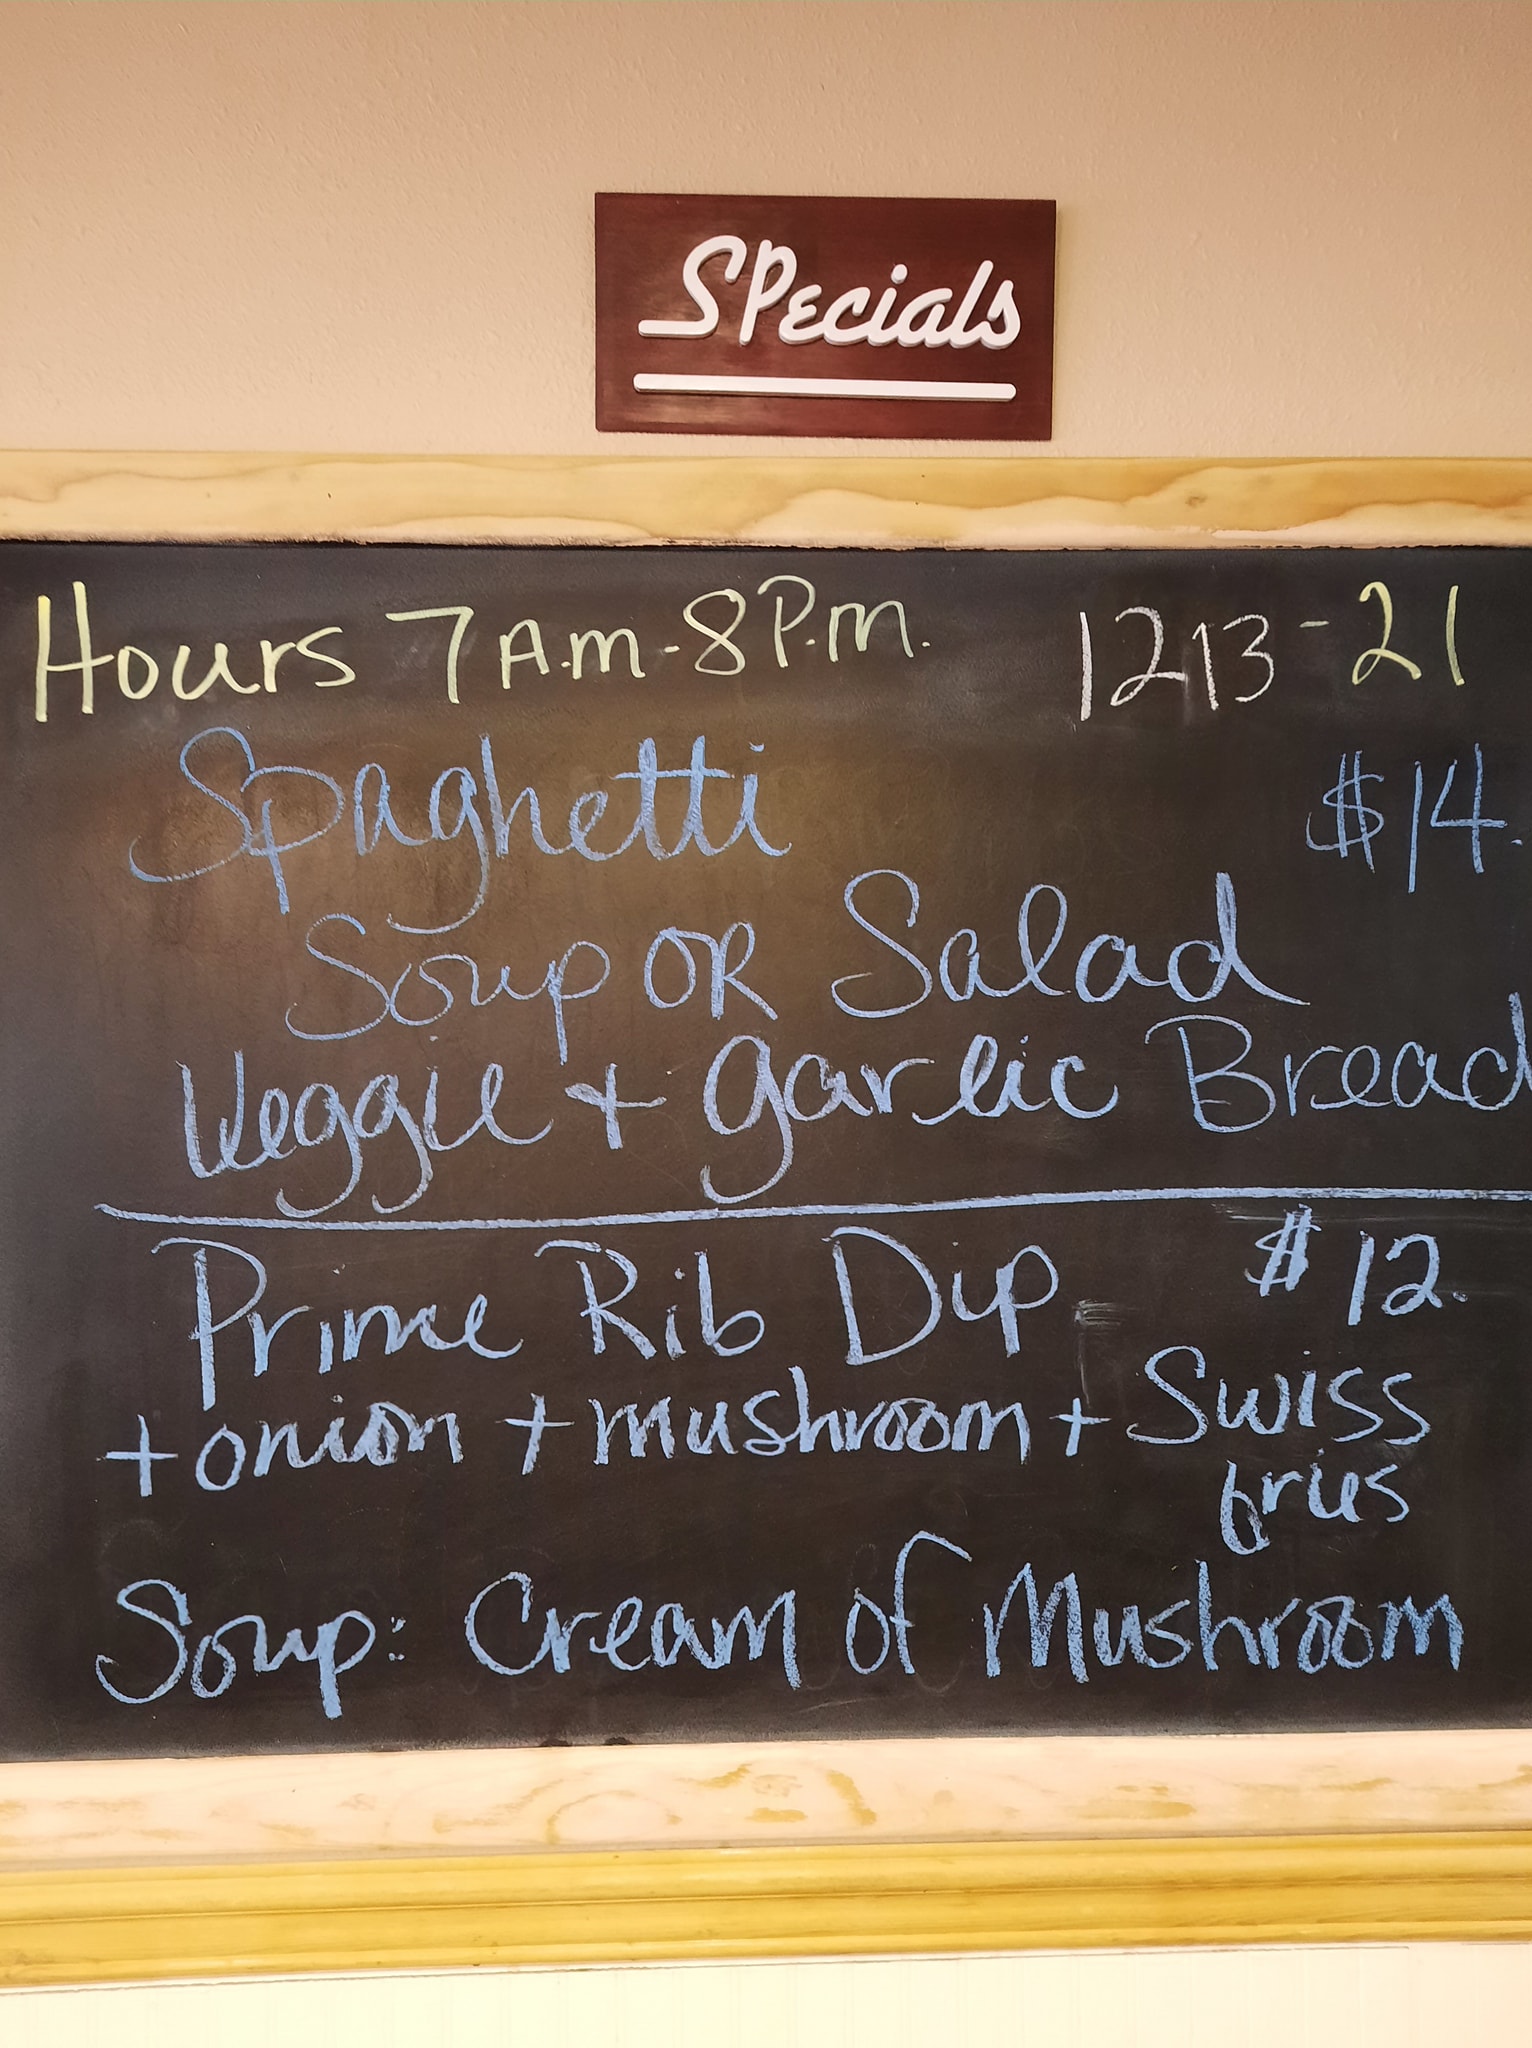 SPecials
Hours 7 A.m.-8 P.m. 1213-21
Spaghetti $14.
Soup OR Salad
Veggie + garlic Bread
Prime Rib Dip $12.
+ onion + mushroom + Swiss
fries
Soup: Cream of Mushroom